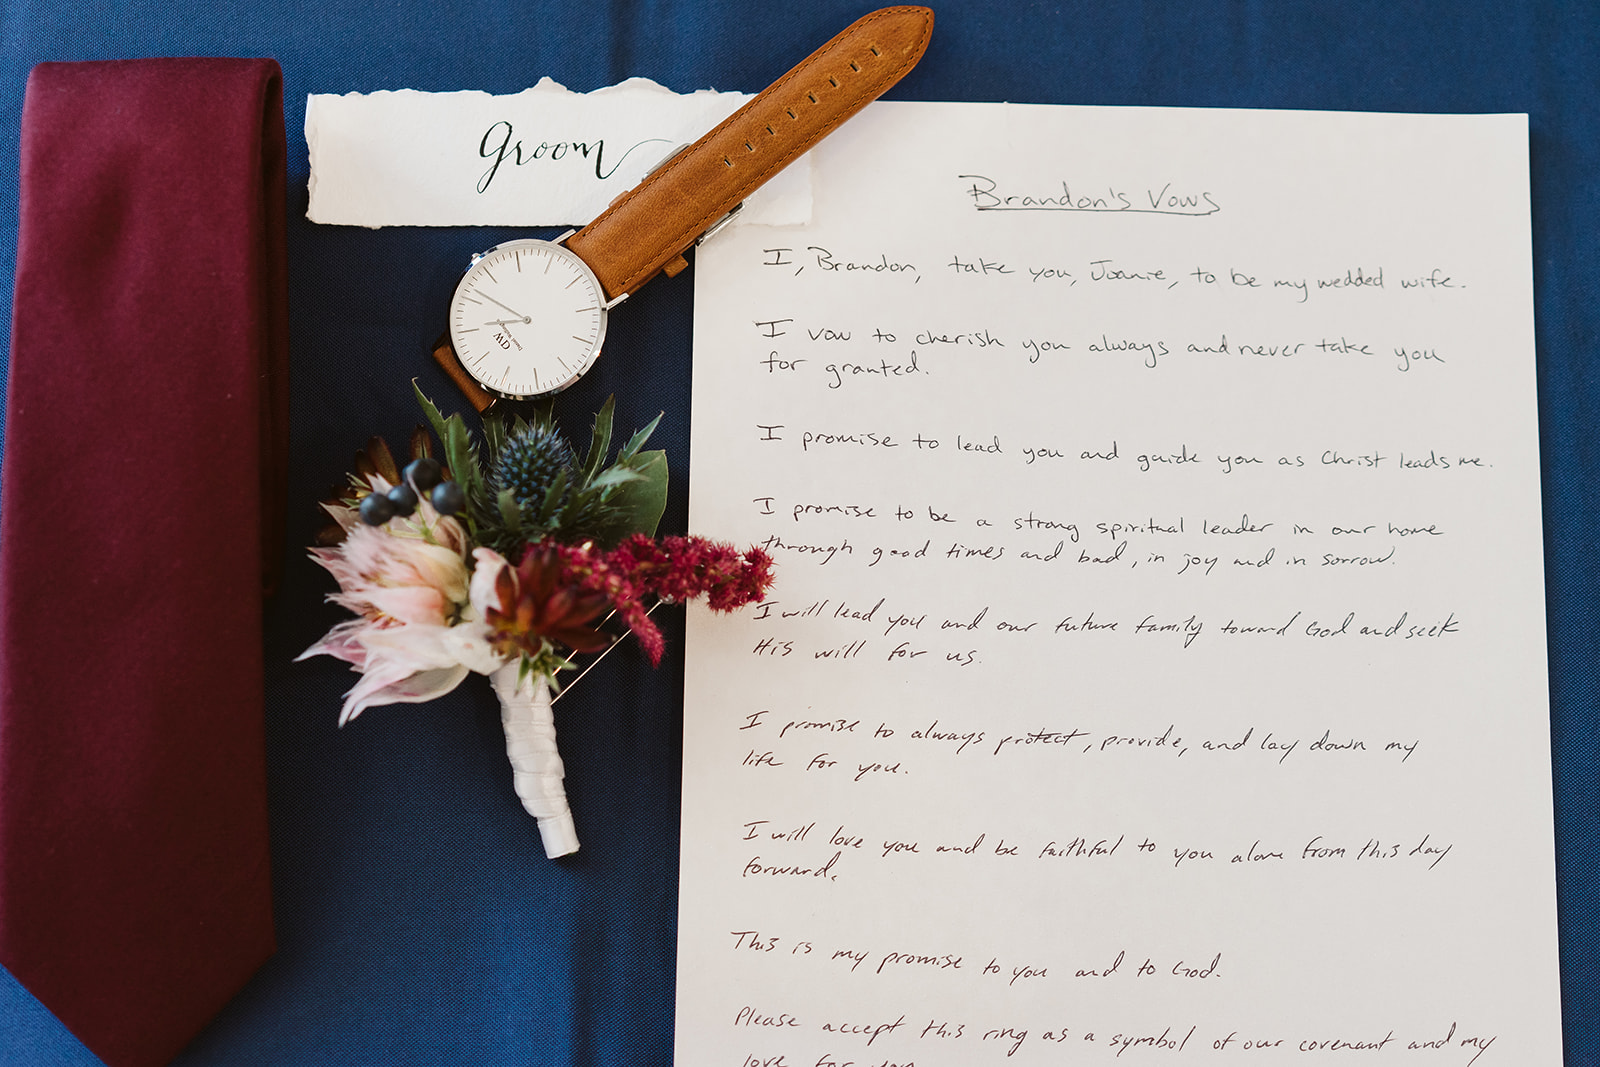 Groom
DW
Daniel Wellington
Brandon's Vows
I, Brandon, take you, Joanie, to be my wedded wife.
I vow to cherish you always and never take you
for granted.
I promise to lead you and guide you as Christ leads me.
I promise to be a strong spiritual leader in our home
through good times and bad, in joy and in sorrow.
I will lead you and our future family toward God and seek
His will for us.
I promise to always protect, provide, and lay down my
life for you.
I will love you and be faithful to you alone from this day
forward.
This is my promise to you and to God.
Please accept this ring as a symbol of our covenant and my
love for you